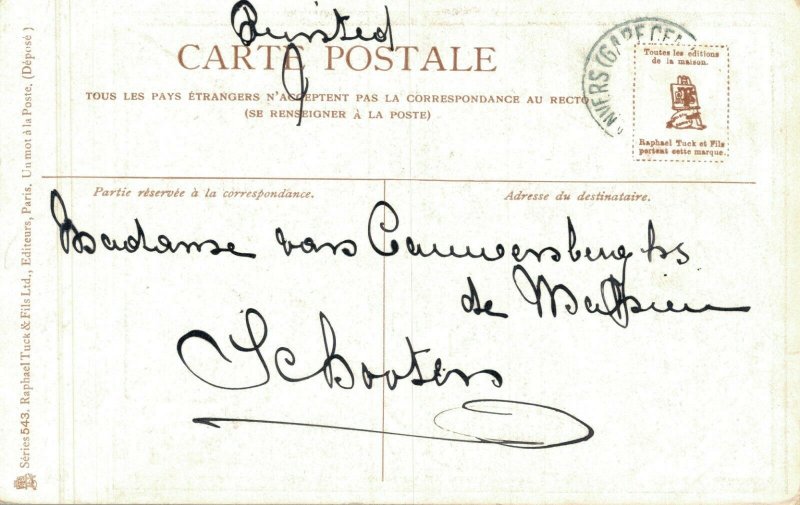 Printed
CARTE POSTALE
TOUS LES PAYS ÉTRANGERS N'ACCEPTENT PAS LA CORRESPONDANCE AU RECTO
(SE RENSEIGNER À LA POSTE)
NVERS (GARE CEN
Toutes les éditions
de la maison.
Raphael Tuck et Fils
portent cette marque.
Partie réservée à la correspondance.
Adresse du destinataire.
Madame van Cauwenberghs
de
Schooten
Séries 543. Raphael Tuck & Fils Ltd., Editeurs, Paris, Un mot à la Poste, (Déposé)